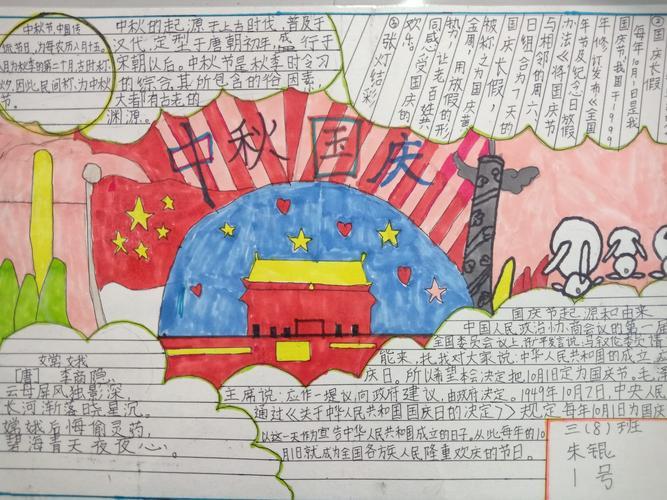 中秋节,中国传
统节日,为每农历八月十五,
八月为秋季的第二个月,古时称
因此,民间称,为中秋
节。
中秋的起源于上古时代,普及于
汉代,定型于唐朝初年,盛行于
宋朝以后。中秋节是秋季时令习
的综合,其所包含的俗因素,
大都有古老的
渊源。
国庆长假
每年10月1日是我
国庆节,我国于1999
年修订发布《全国
年节及纪念日放假
办法》将国庆节
与相邻的周六、
日组合为7天的
国庆长假,
被称之为国庆黄
金周,用放假的形
势,让老百姓共
同感受国庆的
张灯结彩
中秋国庆
[唐] 李商隐.
云母屏风独影深,
长河渐落晓星沉。
嫦娥后悔偷灵药,
碧海青天夜夜心。
国庆节起源和由来
中国人民政治协商会议的第一
全国委员会议上,许广平发言说,马叙伦委员请
能来,托我对大家说,中华人民共和国的成立
庆日。所以希望本会决定把10月1日定为国庆节,毛泽
主席说:应作一提议,向政府建议,由政府决定。1949年10月2日,中央人
通过《关于中华人民共和国国庆日的决定》规定每年10月1日为国庆
以这一天作为宣告中华人民共和国成立的日子。从此,每年的10
月1日就成为全国各方族人民隆重欢庆的节日。
三(8)班
朱锟
1号